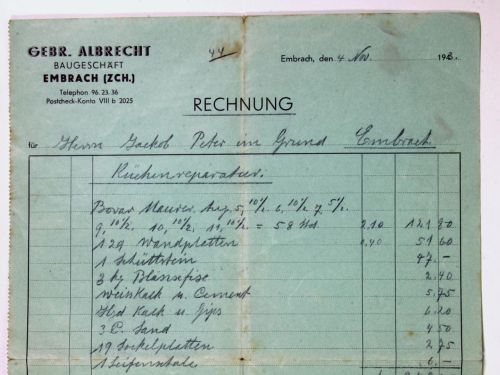 GEBR. ALBRECHT
BAUGESCHÄFT
EMBRACH (ZCH.)
Telephon 96.23.36
Postcheck-Konto VIII b 2025
44
Embrach, den 4 Nov. 193
RECHNUNG
für Herrn Jackob Peter im Grund Embrach
Küchenreparatur.
Maurer Aug. 5, 10½ 6, 10½ 7, 5½
9, 10½ 10, 10½ 11, 10½ = 58 Std. 2,10 121 80
129 Wandplatten 0,40 51 60
1 Schüttstein 47.-
3 kg 2,40
Weisskalk u. Cement 5,75
Kalk u. Gips 6,20
3 C. Sand 4 50
19 Sockelplatten 2 75
1 Seifenschale 6.-